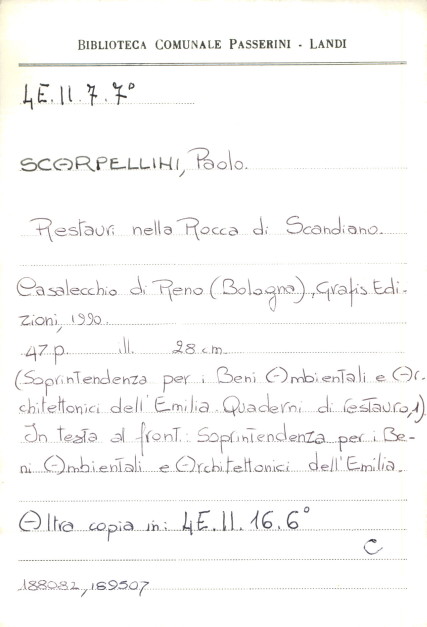 BIBLIOTECA COMUNALE PASSERINI - LANDI
4E.II.7.7°
SCARPELLINI, Paolo.
Restauri nella Rocca di Scandiano.
Casalecchio di Reno (Bologna), Grafis Edi-
zioni, 1990.
47 p. ill. 28 cm.
(Soprintendenza per i Beni Ambientali e Ar-
chitettonici dell'Emilia. Quaderni di restauro, 1)
In testa al front.: Soprintendenza per i Be-
ni Ambientali e Architettonici dell'Emilia.
Altra copia in: 4E.II.16.6°
C
188082, 169507